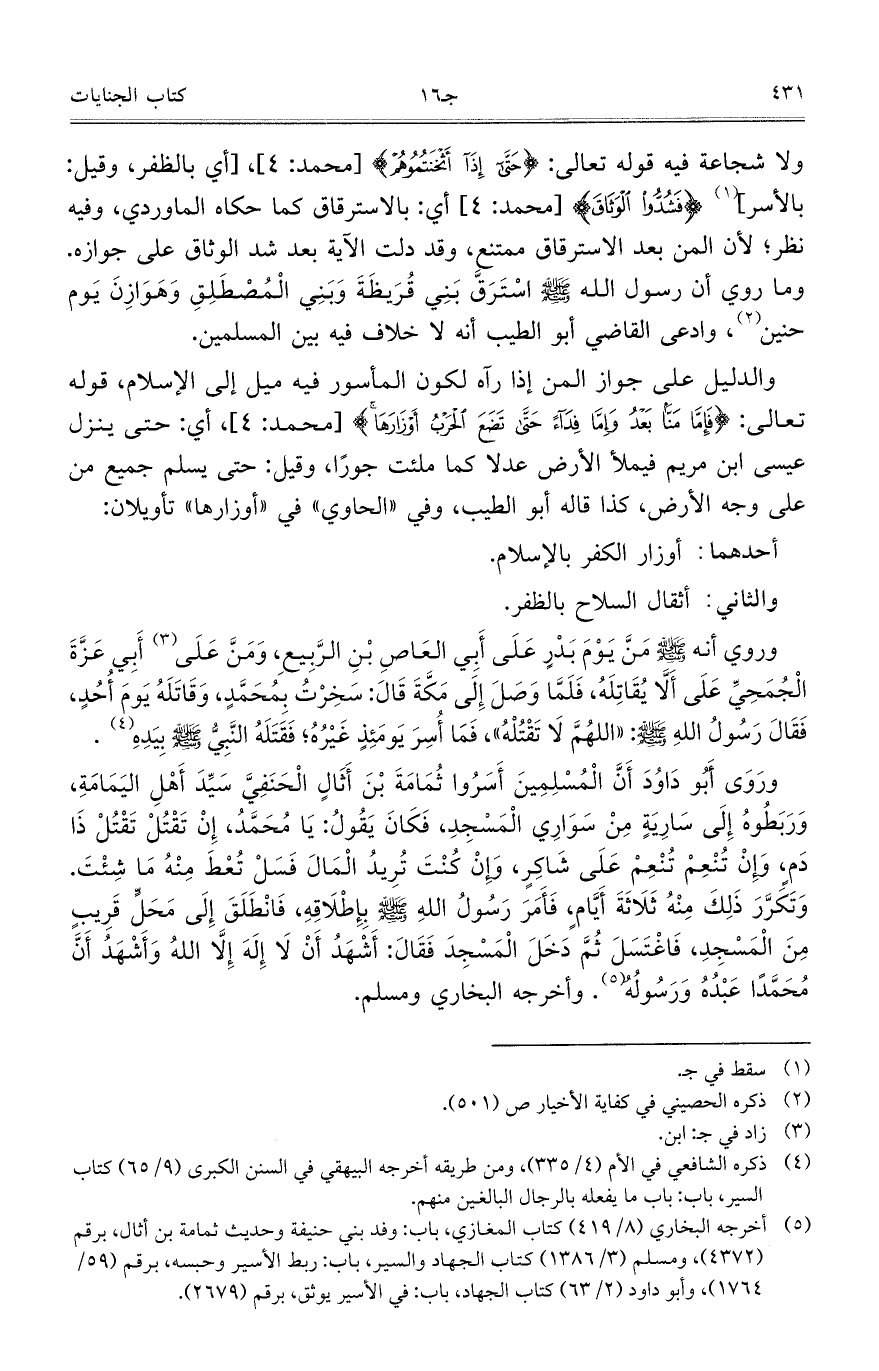 ٤٣١ جـ١٦ كتاب الجنايات
ولا شجاعة فيه قوله تعالى: ﴿حَتَّىٰٓ إِذَآ أَثْخَنتُمُوهُمْ﴾ [محمد: ٤]، [أي بالظفر، وقيل:
بالأسر](١) ﴿فَشُدُّوا۟ ٱلْوَثَاقَ﴾ [محمد: ٤] أي: بالاسترقاق كما حكاه الماوردي، وفيه
نظر؛ لأن المن بعد الاسترقاق ممتنع، وقد دلت الآية بعد شد الوثاق على جوازه.
وما روي أن رسول الله ﷺ اسْتَرَقَّ بَنِي قُرَيظَةَ وَبَنِي الْمُصْطَلِقِ وَهَوَازِنَ يَوم
حنين(٢)، وادعى القاضي أبو الطيب أنه لا خلاف فيه بين المسلمين.
والدليل على جواز المن إذا رآه لكون المأسور فيه ميل إلى الإسلام، قوله
تعالى: ﴿فَإِمَّا مَنًّۢا بَعْدُ وَإِمَّا فِدَآءً حَتَّىٰ تَضَعَ ٱلْحَرْبُ أَوْزَارَهَاۚ﴾ [محمد: ٤]، أي: حتى ينزل
عيسى ابن مريم فيملأ الأرض عدلا كما ملئت جورًا، وقيل: حتى يسلم جميع من
على وجه الأرض، كذا قاله أبو الطيب، وفي «الحاوي» في «أوزارها» تأويلان:
أحدهما: أوزار الكفر بالإسلام.
والثاني: أثقال السلاح بالظفر.
وروي أنه ﷺ مَنَّ يَوْمَ بَدْرٍ عَلَى أَبِي العَاصِ بْنِ الرَّبِيعِ، وَمَنَّ عَلَى(٣) أَبِي عَزَّةَ
الْجُمَحِيِّ عَلَى أَلَّا يُقَاتِلَهُ، فَلَمَّا وَصَلَ إِلَى مَكَّةَ قَالَ: سَخِرْتُ بِمُحَمَّدٍ، وَقَاتَلَهُ يَومَ أُحُدٍ،
فَقَالَ رَسُولُ اللهِ ﷺ: «اللهُمَّ لَا تَقْتُلْهُ»، فَمَا أُسِرَ يَومَئِذٍ غَيْرُهُ؛ فَقَتَلَهُ النَّبِيُّ ﷺ بِيَدِهِ(٤) .
ورَوَى أَبُو دَاوُدَ أَنَّ الْمُسْلِمِينَ أَسَرُوا ثُمَامَةَ بْنَ أَثَالٍ الْحَنَفِيَّ سَيِّدَ أَهْلِ اليَمَامَةِ،
وَرَبَطُوهُ إِلَى سَارِيَةٍ مِنْ سَوَارِي الْمَسْجِدِ، فَكَانَ يَقُولُ: يَا مُحَمَّدُ، إِنْ تَقْتُلْ تَقْتُلْ ذَا
دَمٍ، وَإِنْ تُنْعِمْ تُنْعِمْ عَلَى شَاكِرٍ، وَإِنْ كُنْتَ تُرِيدُ الْمَالَ فَسَلْ تُعْطَ مِنْهُ مَا شِئْتَ.
وَتَكَرَّرَ ذَلِكَ مِنْهُ ثَلَاثَةَ أَيَّامٍ، فَأَمَرَ رَسُولُ اللهِ ﷺ بِإِطْلَاقِهِ، فَانْطَلَقَ إِلَى مَحَلٍّ قَرِيبٍ
مِنَ الْمَسْجِدِ، فَاغْتَسَلَ ثُمَّ دَخَلَ الْمَسْجِدَ فَقَالَ: أَشْهَدُ أَنْ لَا إِلَهَ إِلَّا اللهُ وَأَشْهَدُ أَنَّ
مُحَمَّدًا عَبْدُهُ وَرَسُولُهُ(٥). وأخرجه البخاري ومسلم.
(١) سقط في جـ.
(٢) ذكره الحصيني في كفاية الأخيار ص (٥٠١).
(٣) زاد في جـ: ابن.
(٤) ذكره الشافعي في الأم (٤/ ٣٣٥)، ومن طريقه أخرجه البيهقي في السنن الكبرى (٩/ ٦٥) كتاب
السير، باب: باب ما يفعله بالرجال البالغين منهم.
(٥) أخرجه البخاري (٨/ ٤١٩) كتاب المغازي، باب: وفد بني حنيفة وحديث ثمامة بن أثال، برقم
(٤٣٧٢)، ومسلم (٣/ ١٣٨٦) كتاب الجهاد والسير، باب: ربط الأسير وحبسه، برقم (٥٩/
١٧٦٤)، وأبو داود (٢/ ٦٣) كتاب الجهاد، باب: في الأسير يوثق، برقم (٢٦٧٩).